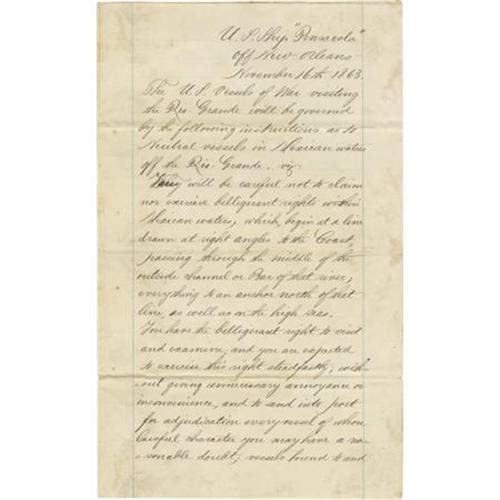 U. S. Ship "Pensacola"
off New Orleans
November 16th 1863.
The U.S. Vessels of War visiting
the Rio Grande will be governed
by the following instructions as to
Neutral vessels in Mexican waters
off the Rio Grande. viz
They will be careful not to claim
nor exercise belligerent rights within
Mexican waters, which begin at a line
drawn at right angles to the Coast,
passing through the middle of the
outside channel or Bar of that river,
everything to an anchor north of that
line, as well as on the high seas.
You have the belligerent right to visit
and examine, and you are expected
to exercise this right steadfastly, with-
out giving unnecessary annoyance or
inconvenience, and to send into port
for adjudication every vessel of whose
lawful character you may have a rea-
sonable doubt; vessels bound to and